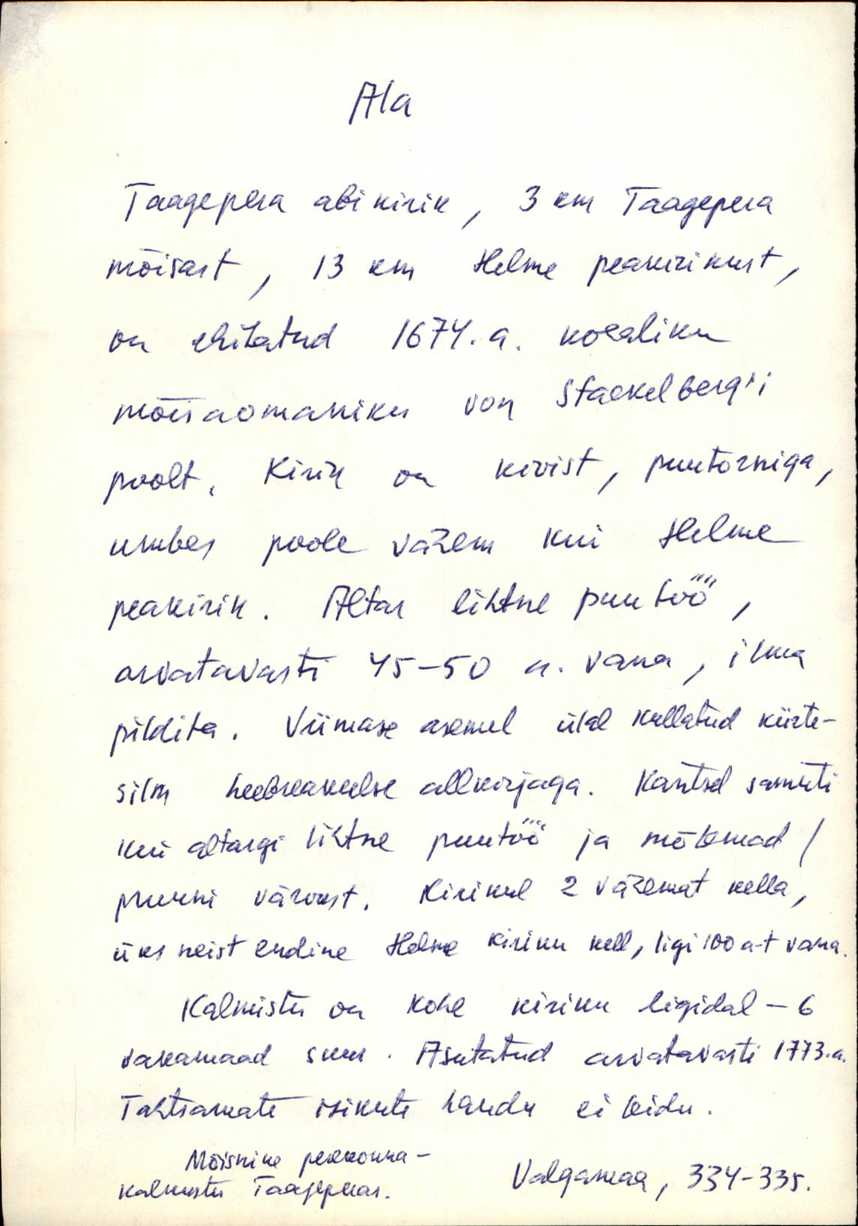 Ala
Taagepera abikirik, 3 km Taagepera
mõisast, 13 km Helme peakirikust,
on ehitatud 1674. a. kohaliku
mõisaomaniku von Stackelberg'i
poolt. Kirik on kivist, puutorniga,
umbes poole väzem kui Helme
peakirik. Altar lihtne puutöö,
arvatavasti 45-50 a. vana, ilma
pildita. Viimase asemel ülal kullatud kiirte-
silm heebreakeelse allkirjaga. Kantsel samuti
kui altargi lihtne puutöö ja mõlemad /
pruuni värvust. Kirikul 2 väzemat kella,
üks neist endine Helme kiriku kell, ligi 100 a-t vana.
Kalmistu on kohe kiriku ligidal - 6
vakamaad suur. Asutatud arvatavasti 1773.a.
Tähtsamate isikute haudu ei leidu.
Mõisnike perekonna-
kalmistu Taageperas.
Valgamaa, 334-335.